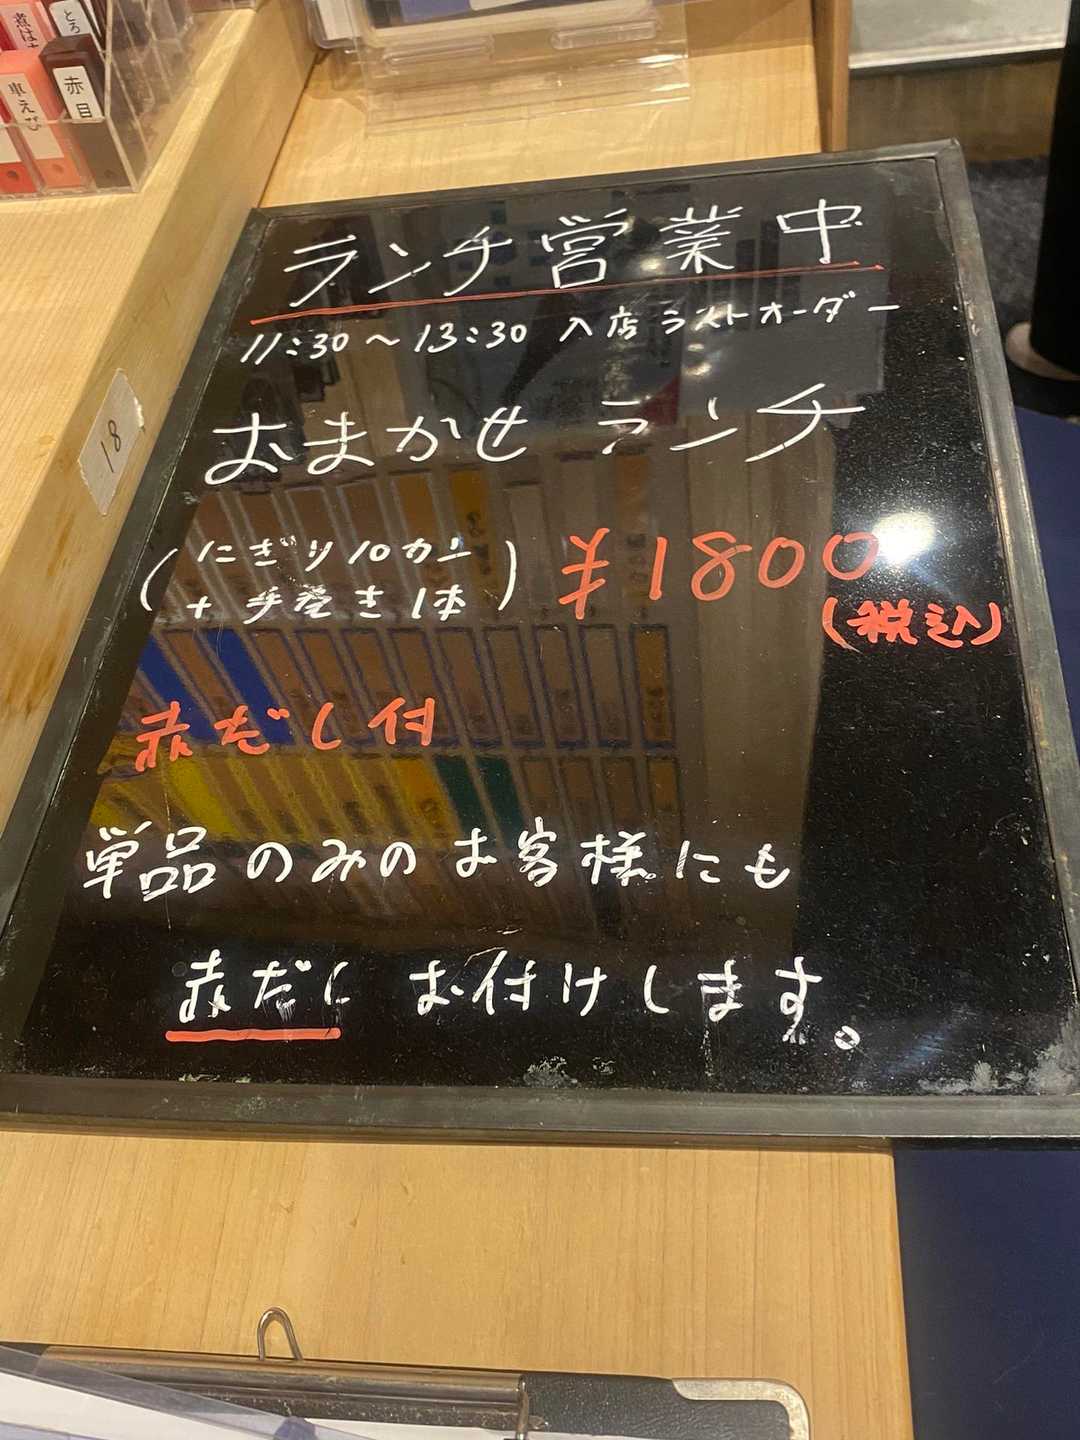 煮は
とろ
車えび
赤目
18
ランチ営業中
11:30～13:30 入店ラストオーダー
おまかせ ランチ
(にぎり10カン
+手巻き1本)
¥1800
(税込)
赤だし付
単品のみのお客様にも
赤だし お付けします。